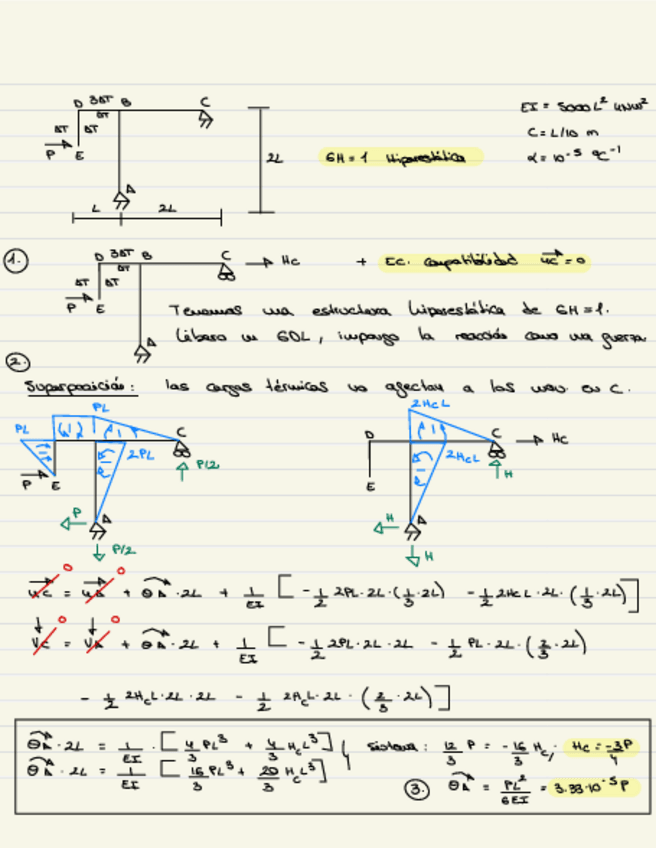 D 3ΔT B C
ΔT
ΔT ΔT
P E
A
L 2L
2L
GH = 1 Hiperestática
EI = 5000L² kNm²
C = L/10 m
α = 10⁻⁵ ºC⁻¹
1.
D 3ΔT B C → Hc + Ec. compatibilidad uc = 0
ΔT
ΔT ΔT
P E
A
Tenemos una estructura hiperestática de GH = 1.
Libero un GDL, impongo la reacción como una fuerza
2.
Superposición: las cargas térmicas no afectan a los mov. en C.
PL
PL
2PL
C
P/2
P E
P
A
P/2
2HcL
D C → Hc
2HcL
H
E
H
A
H
uc = uA + θA · 2L + 1/EI [ - 1/2 2PL · 2L · (1/3 · 2L) - 1/2 2HcL · 2L · (1/3 · 2L) ]
0 0
vc = vA + θA · 2L + 1/EI [ - 1/2 2PL · 2L · 2L - 1/2 PL · 2L · (2/3 · 2L)
0 0
- 1/2 2HcL · 2L · 2L - 1/2 2HcL · 2L · (2/3 · 2L) ]
θA · 2L = 1/EI · [ 4/3 PL³ + 4/3 HcL³ ]
θA · 2L = 1/EI [ 16/3 PL³ + 20/3 HcL³ ]
sistema: 12/3 P = - 16/3 Hc; Hc = -3P/4
3. θA = PL²/6EI = 3.33·10⁻⁵ P